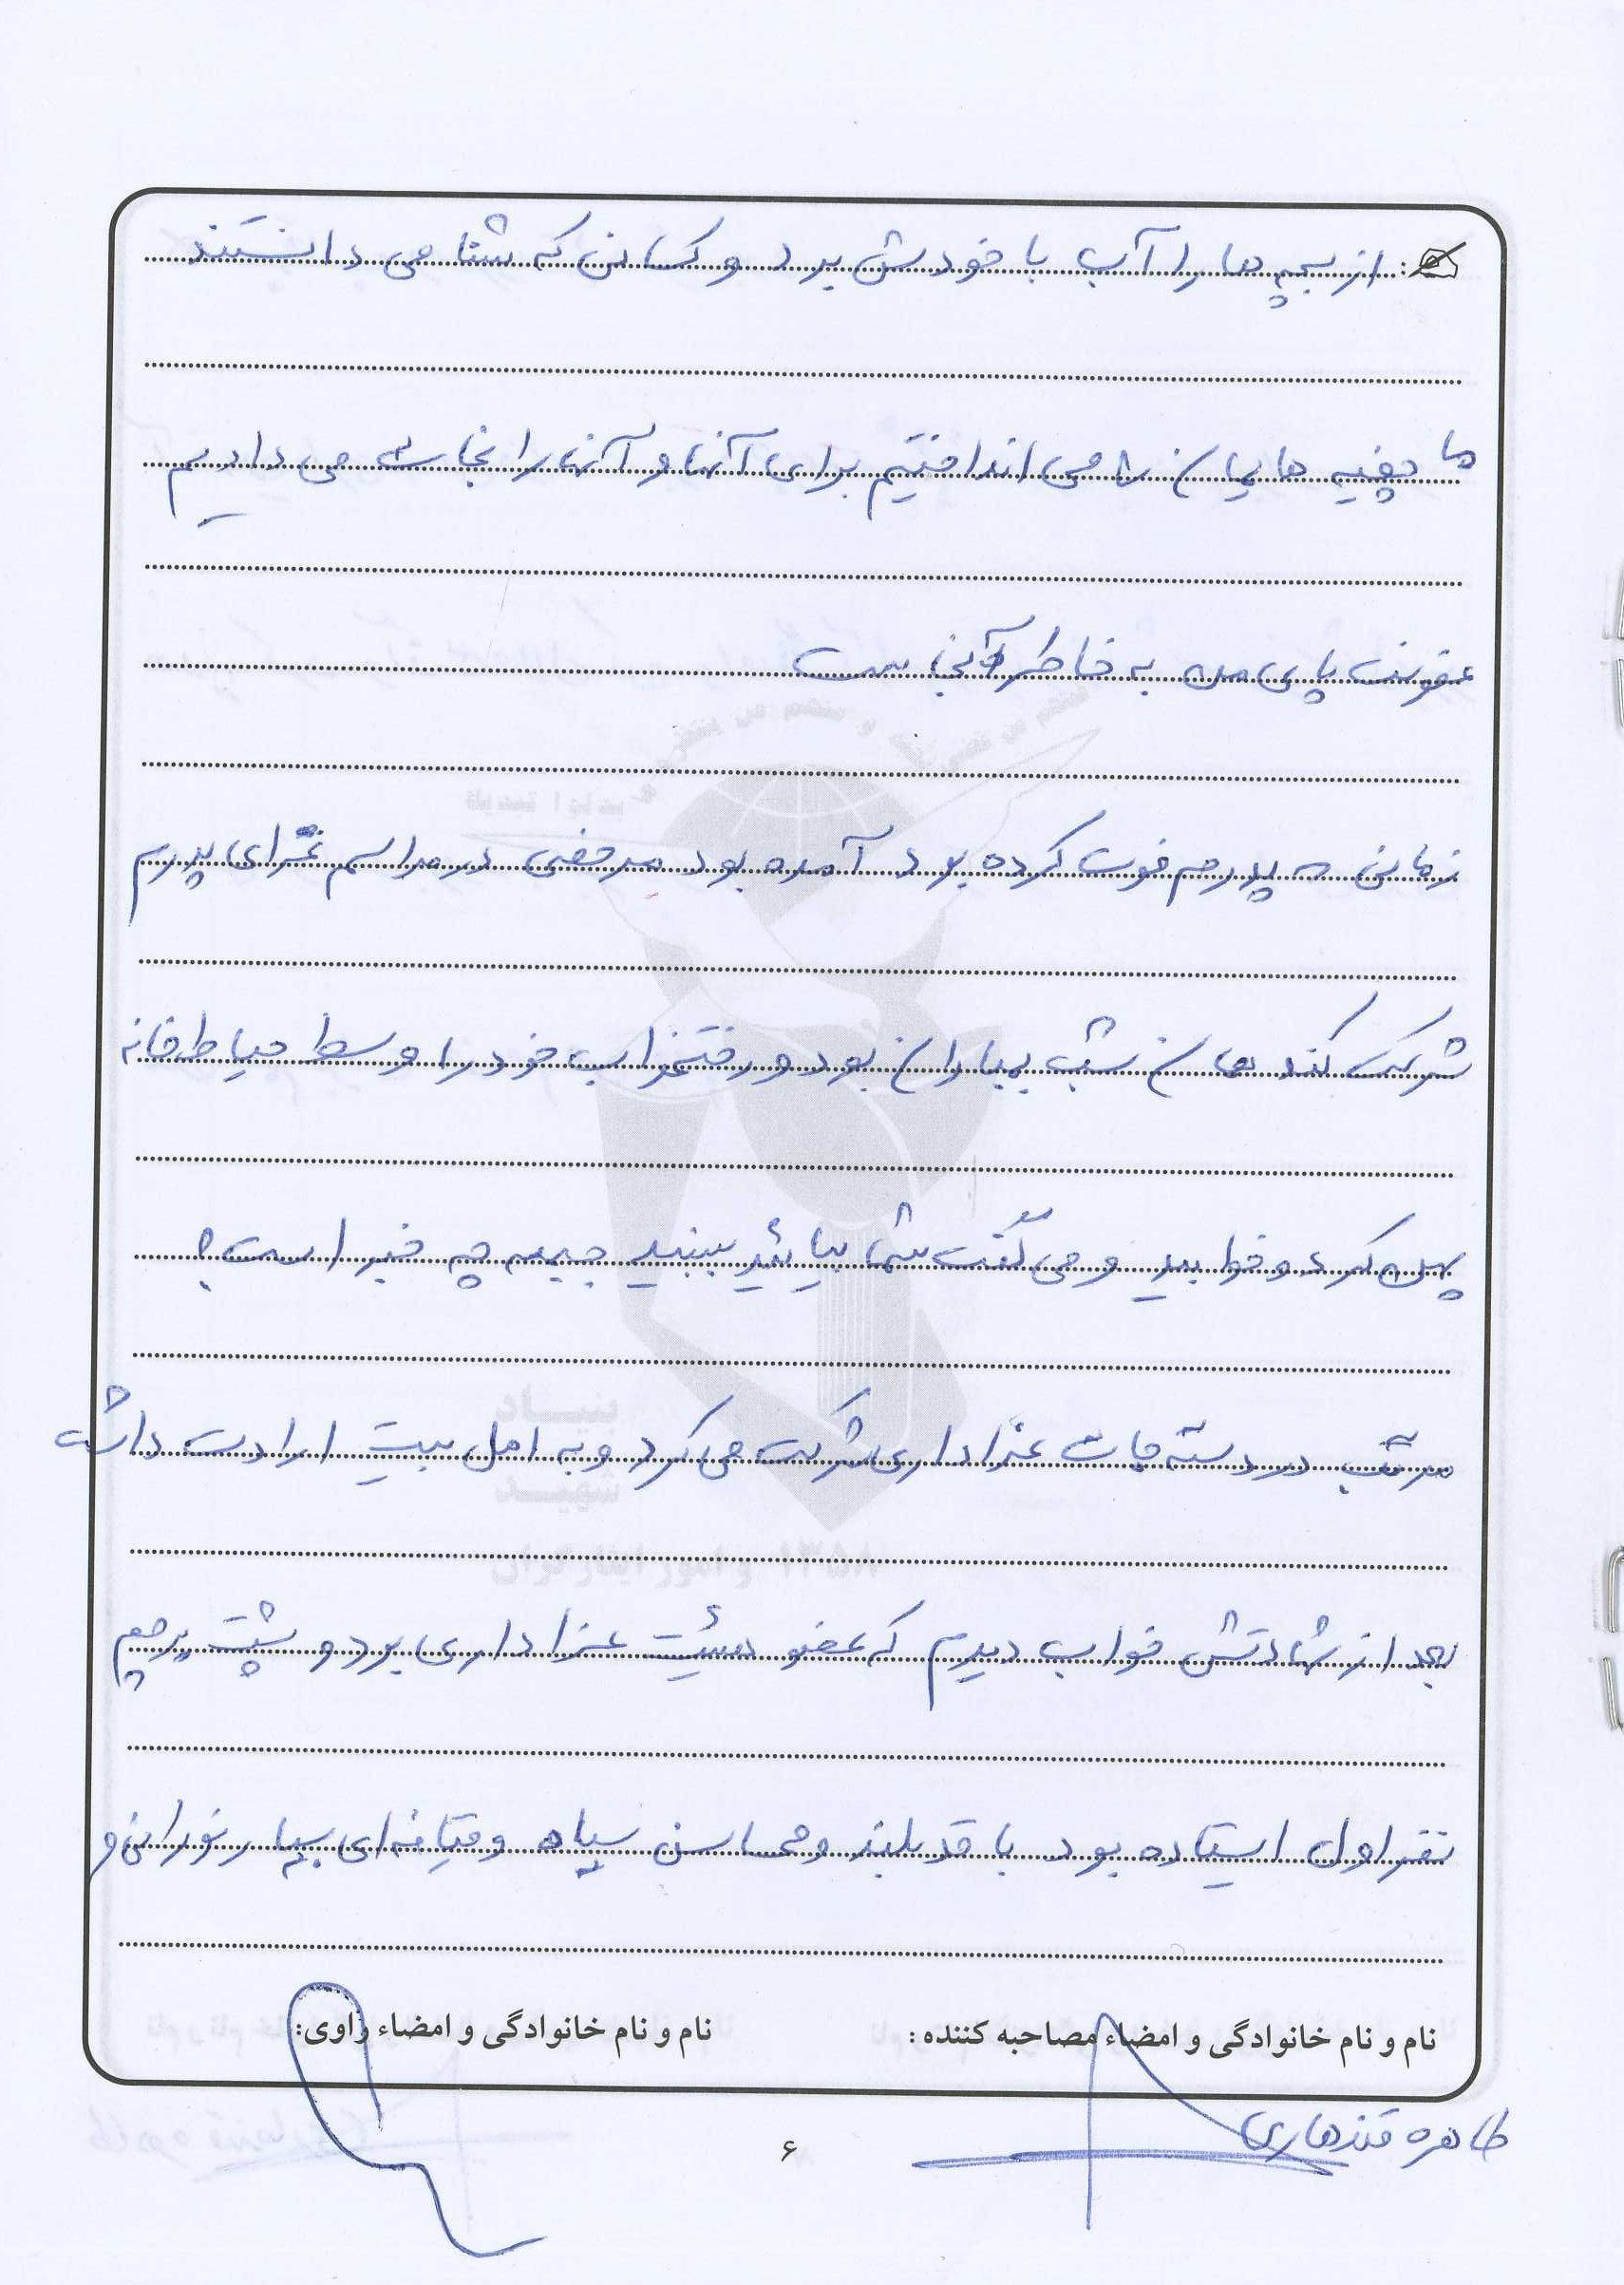 از بچه ها را آب با خودش برد و کسانی که شنا می دانستند
ما چفیه هایمان را می انداختیم برای آنها و آنها را نجات می دادیم
عفونت پای من به خاطر آنجاست
زمانی که پدرم فوت کرده بود آمده بود مرخصی در مراسم عزای پدرم
شرکت کند همان شب بمباران بود و رختخواب خود را وسط حیاط خانه
پهن کرد و خوابید و می گفت شما بیائید ببینید جبهه چه خبر است؟
مرتب در دسته جات عزاداری شرکت می کرد و به اهل بیت ارادت داشت
بعد از شهادتش خواب دیدم که عضو هیئت عزاداری بود و پشت پرچم
نفر اول ایستاده بود با قد بلند و محاسن سیاه و قیافه ای بسیار نورانی و
نام و نام خانوادگی و امضاء مصاحبه کننده : نام و نام خانوادگی و امضاء راوی:
طاهره قندهاری
۶